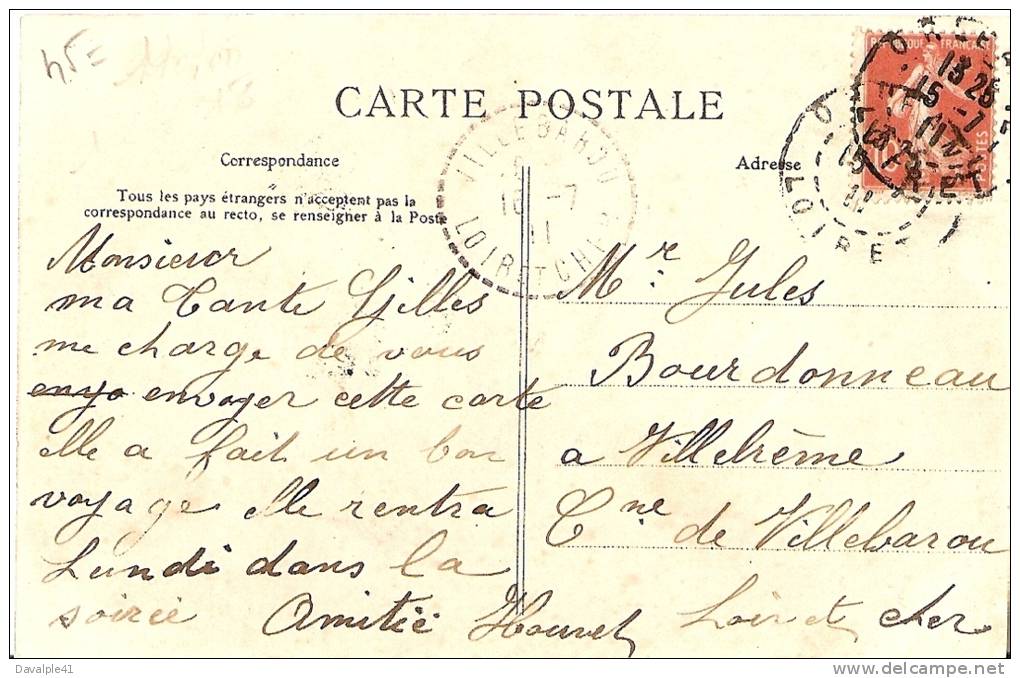 45=
CARTE POSTALE
Correspondance
Adresse
Tous les pays étrangers n'acceptent pas la
correspondance au recto, se renseigner à la Poste
VILLEBAROU
-7
11
LOIR ET CHER
REPUBLIQUE FRANÇAISE
POSTES
13 25
15 -7
LOIRET
LOIRE
Monsieur
ma Tante Gilles
me charge de vous
envo envoyer cette carte
elle a fait un bon
voyage elle rentra
Lundi dans la
soirée Amitié
Mr. Jules
Bourdonneau
a Villebrème
Cne de Villebarou
Loir et cher
Davalple41
delcampe.net